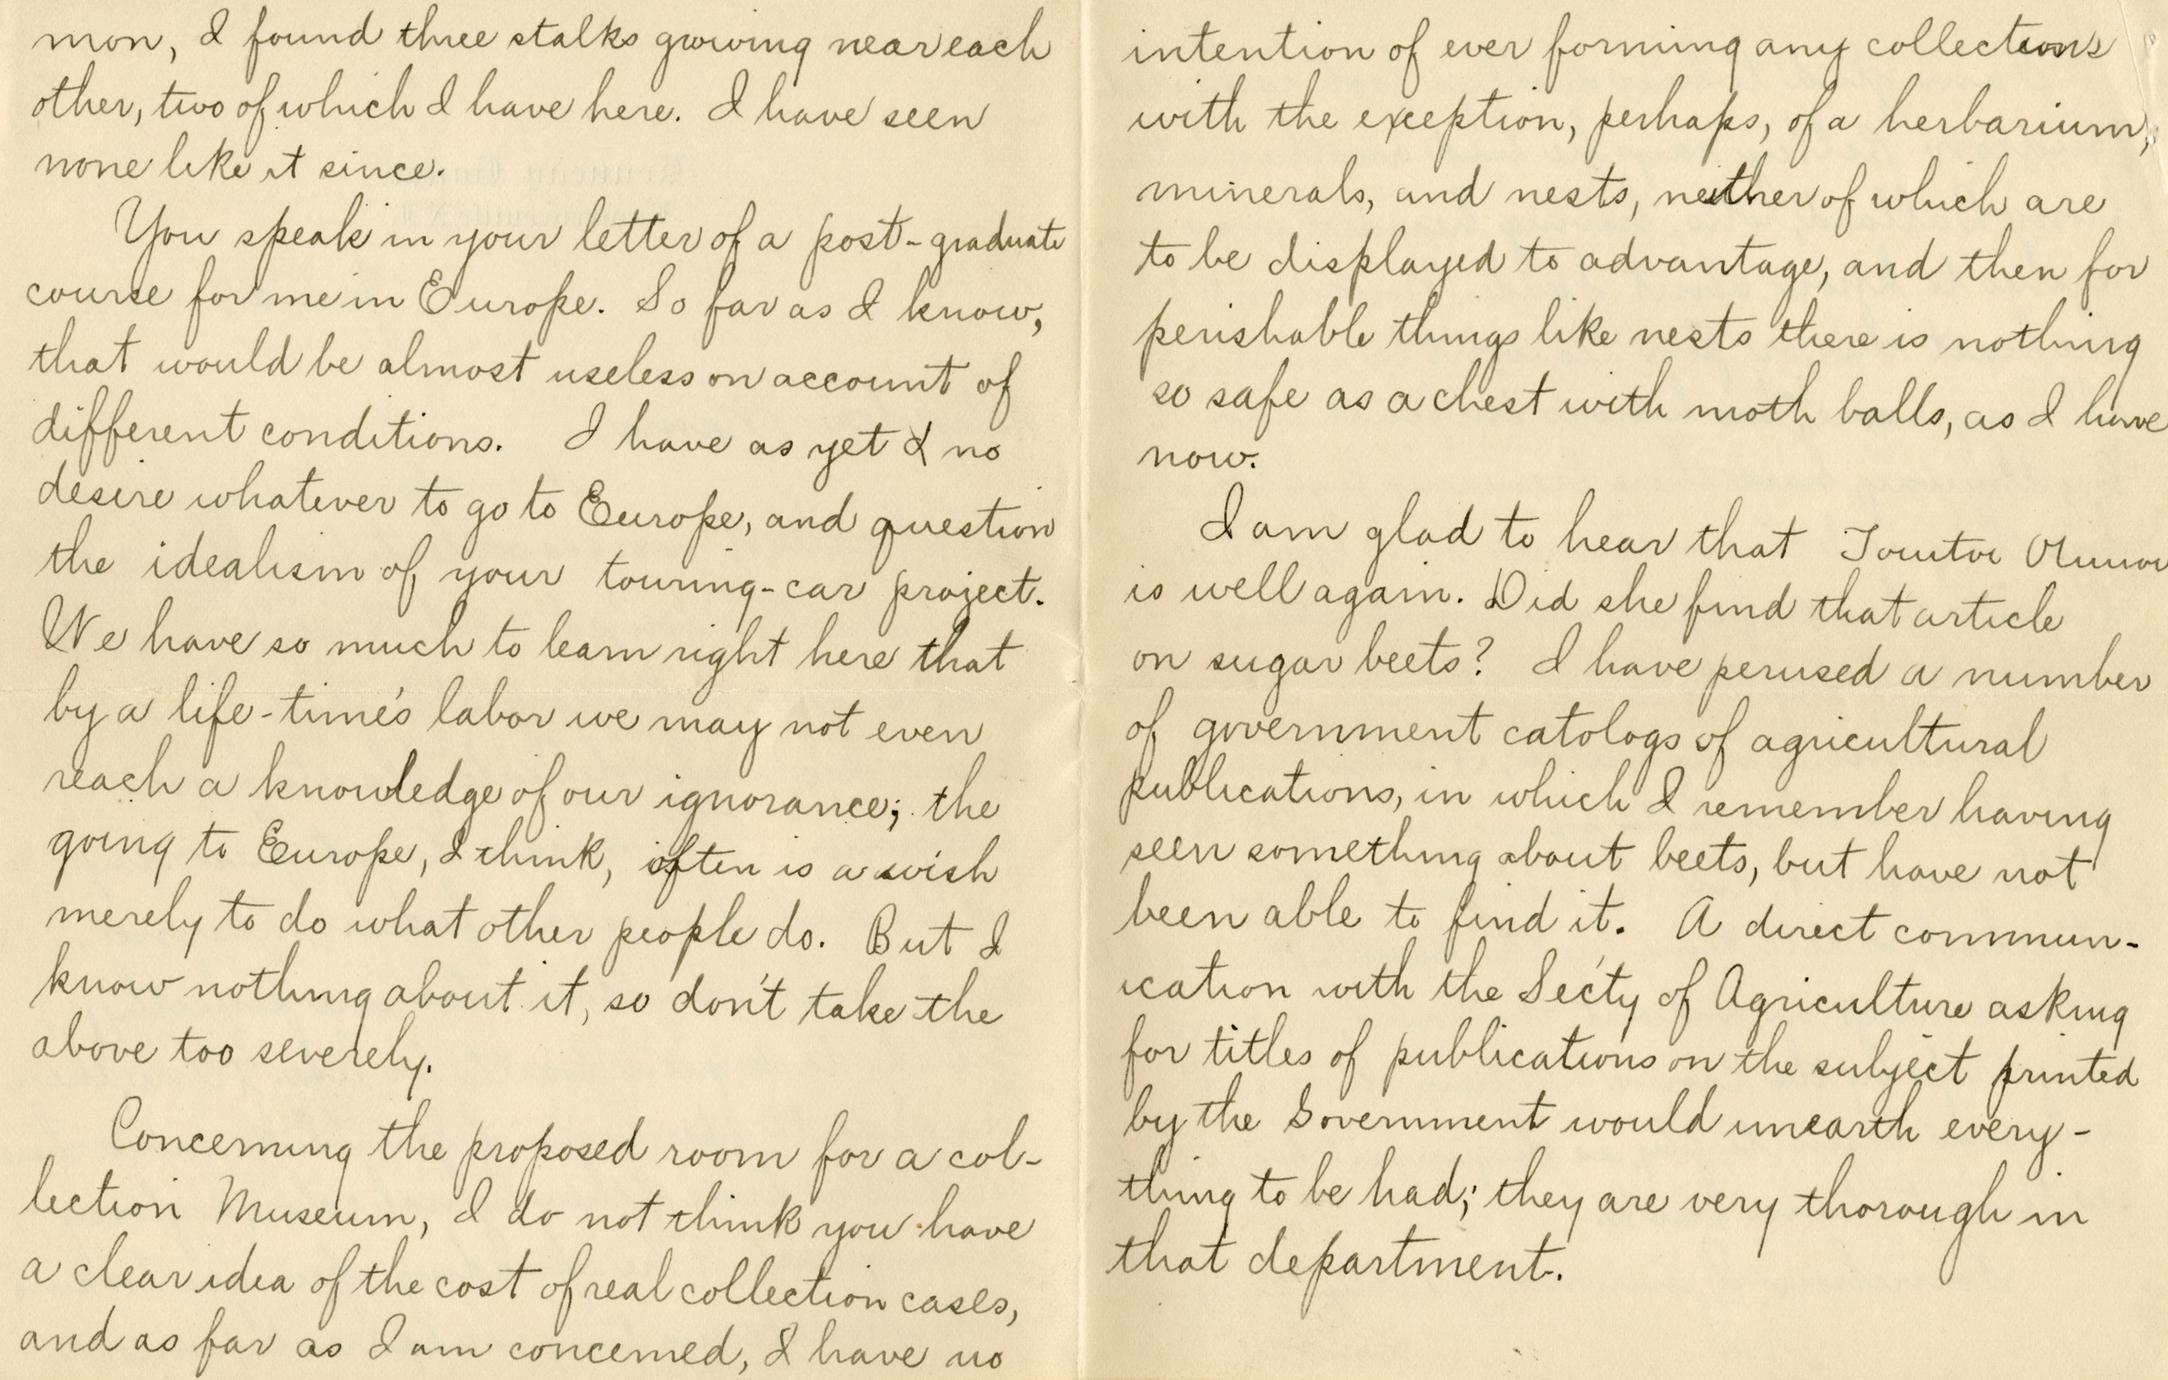 mon, I found three stalks growing near each
other, two of which I have here. I have seen
none like it since.
You speak in your letter of a post-graduate
course for me in Europe. So far as I know,
that would be almost useless on account of
different conditions. I have as yet I no
desire whatever to go to Europe, and question
the idealism of your touring-car project.
We have so much to learn right here that
by a life-time's labor we may not even
reach a knowledge of our ignorance; the
going to Europe, I think, often is a wish
merely to do what other people do. But I
know nothing about it, so don't take the
above too severely.
Concerning the proposed room for a col-
lection Museum, I do not think you have
a clear idea of the cost of real collection cases,
and as far as I am concerned, I have no
intention of ever forming any collections
with the exception, perhaps, of a herbarium,
minerals, and nests, neither of which are
to be displayed to advantage, and then for
perishable things like nests there is nothing
so safe as a chest with moth balls, as I have
now.
I am glad to hear that
is well again. Did she find that article
on sugar beets? I have perused a number
of government catologs of agricultural
publications, in which I remember having
seen something about beets, but have not
been able to find it. A direct commun-
ication with the Sec'ty of Agriculture asking
for titles of publications on the subject printed
by the Government would unearth every-
thing to be had; they are very thorough in
that department.